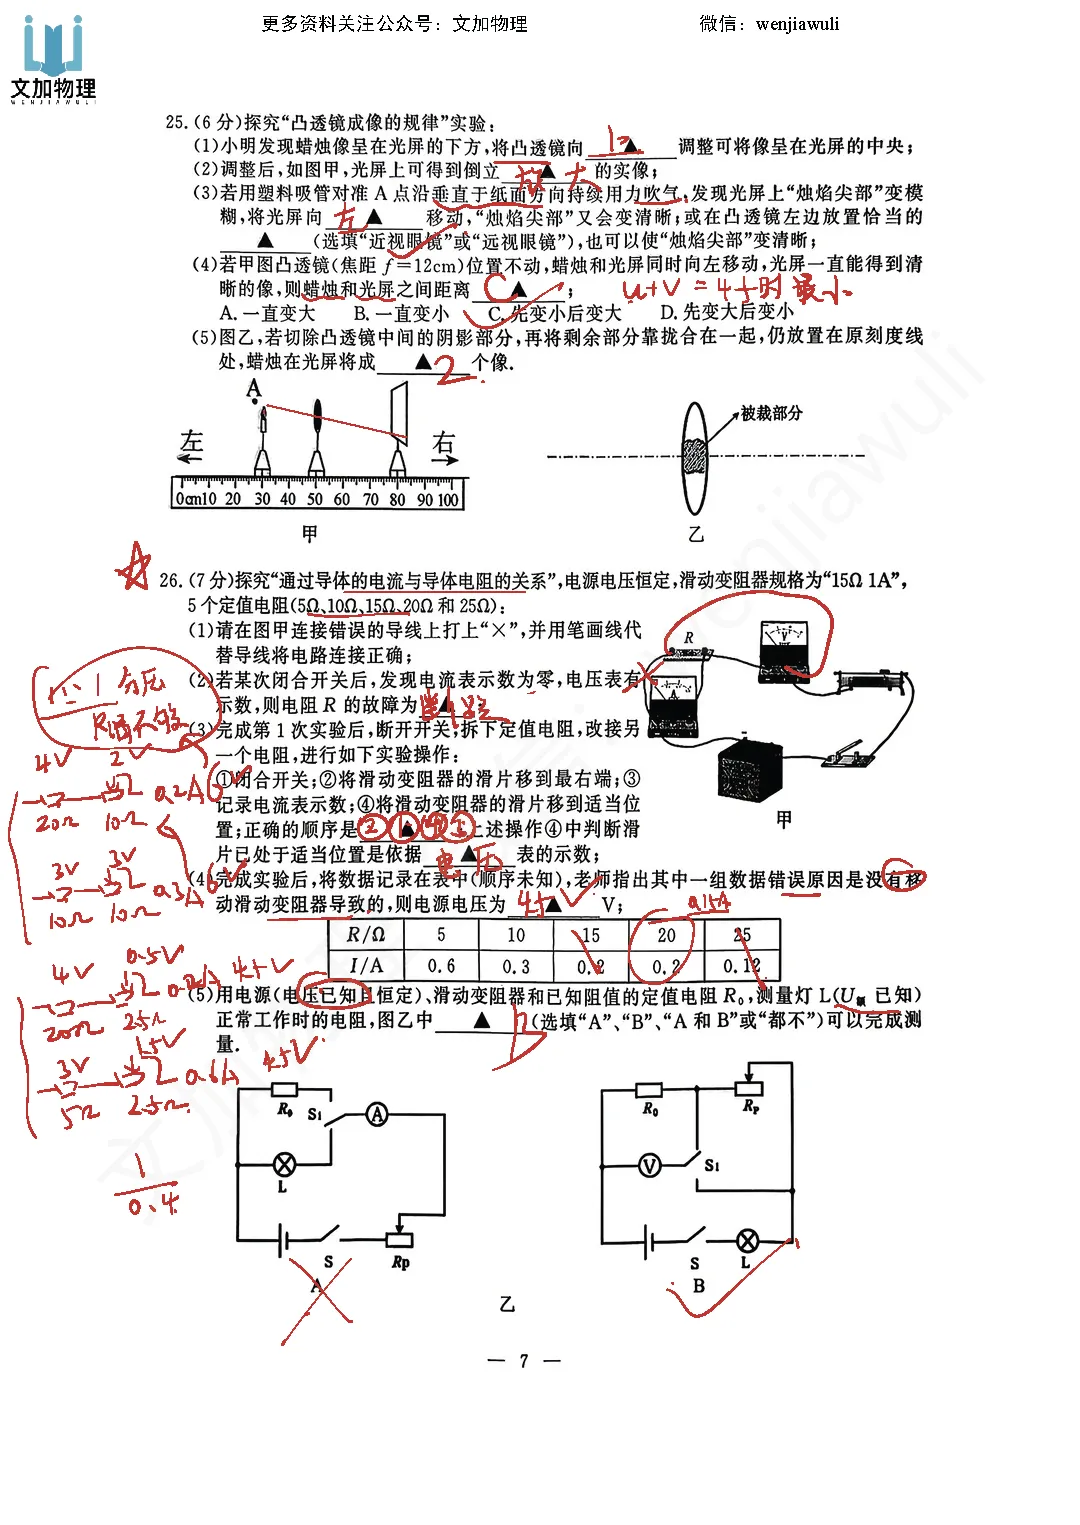 更多资料关注公众号：文加物理
微信：wenjiawuli
文加物理
WENJIAWULI
25.(6分)探究“凸透镜成像的规律”实验：
(1)小明发现蜡烛像呈在光屏的下方,将凸透镜向 上 ▲ 调整可将像呈在光屏的中央；
(2)调整后,如图甲,光屏上可得到倒立 放大 ▲ 的实像；
(3)若用塑料吸管对准 A 点沿垂直于纸面方向持续用力吹气,发现光屏上“烛焰尖部”变模
糊,将光屏向 左 ▲ 移动,“烛焰尖部”又会变清晰;或在凸透镜左边放置恰当的
▲ (选填“近视眼镜”或“远视眼镜”),也可以使“烛焰尖部”变清晰；
(4)若甲图凸透镜(焦距 f＝12cm)位置不动,蜡烛和光屏同时向左移动,光屏一直能得到清
晰的像,则蜡烛和光屏之间距离 C ▲ ； u+v=4f时最小
A. 一直变大 B. 一直变小 C. 先变小后变大 D. 先变大后变小
(5)图乙,若切除凸透镜中间的阴影部分,再将剩余部分靠拢合在一起,仍放置在原刻度线
处,蜡烛在光屏将成 ▲ 2 个像.
A
左
右
0cm10 20 30 40 50 60 70 80 90 100
甲
被裁部分
乙
26.(7分)探究“通过导体的电流与导体电阻的关系”,电源电压恒定,滑动变阻器规格为“15Ω 1A”,
5个定值电阻(5Ω、10Ω、15Ω、20Ω 和 25Ω)：
(1)请在图甲连接错误的导线上打上“×”,并用笔画线代
替导线将电路连接正确；
(2)若某次闭合开关后,发现电流表示数为零,电压表有
示数,则电阻 R 的故障为 断路 ▲ ；
(3)完成第 1 次实验后,断开开关;拆下定值电阻,改接另
一个电阻,进行如下实验操作：
①闭合开关;②将滑动变阻器的滑片移到最右端;③
记录电流表示数;④将滑动变阻器的滑片移到适当位
置;正确的顺序是 ②①④③ ▲ 上述操作④中判断滑
片已处于适当位置是依据 电压 ▲ 表的示数；
R
V
A
甲
(4)完成实验后,将数据记录在表中(顺序未知),老师指出其中一组数据错误原因是没有移
动滑动变阻器导致的,则电源电压为 4.5 ▲ V； 0.15A
R/Ω 5 10 15 20 25
I/A 0.6 0.3 0.2 0.2 0.12
(5)用电源(电压已知且恒定)、滑动变阻器和已知阻值的定值电阻 R₀,测量灯 L(U额 已知)
正常工作时的电阻,图乙中 ▲ B (选填“A”、“B”、“A 和 B”或“都不”)可以完成测
量.
分压
4V 2V
0.2A 6V
20Ω 10Ω
3V 3V
0.3A 6V
10Ω 10Ω
4V 0.5V
0.2A 4.5V
20Ω 2.5Ω
3V 1.5V
0.6A 4.5V
5Ω 2.5Ω
1
0.4
R₀
S₁
A
L
S
Rp
A
R₀
Rp
V
S₁
S
L
B
乙
— 7 —